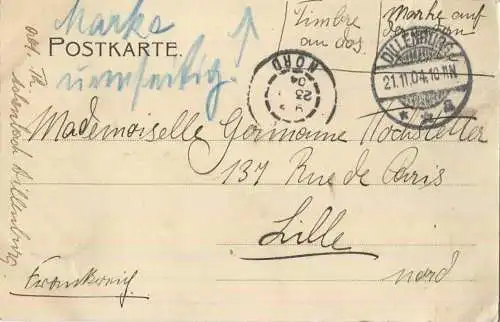 Marke
umseitig.
Timbre
au dos.
Marke auf
POSTKARTE.
DILLENBURG
21.11.04.10-11N
NORD
23
04
Mademoiselle Germaine Hochstetter
137 Rue de Paris
Lille
Nord
Frankreich
Dillenburg